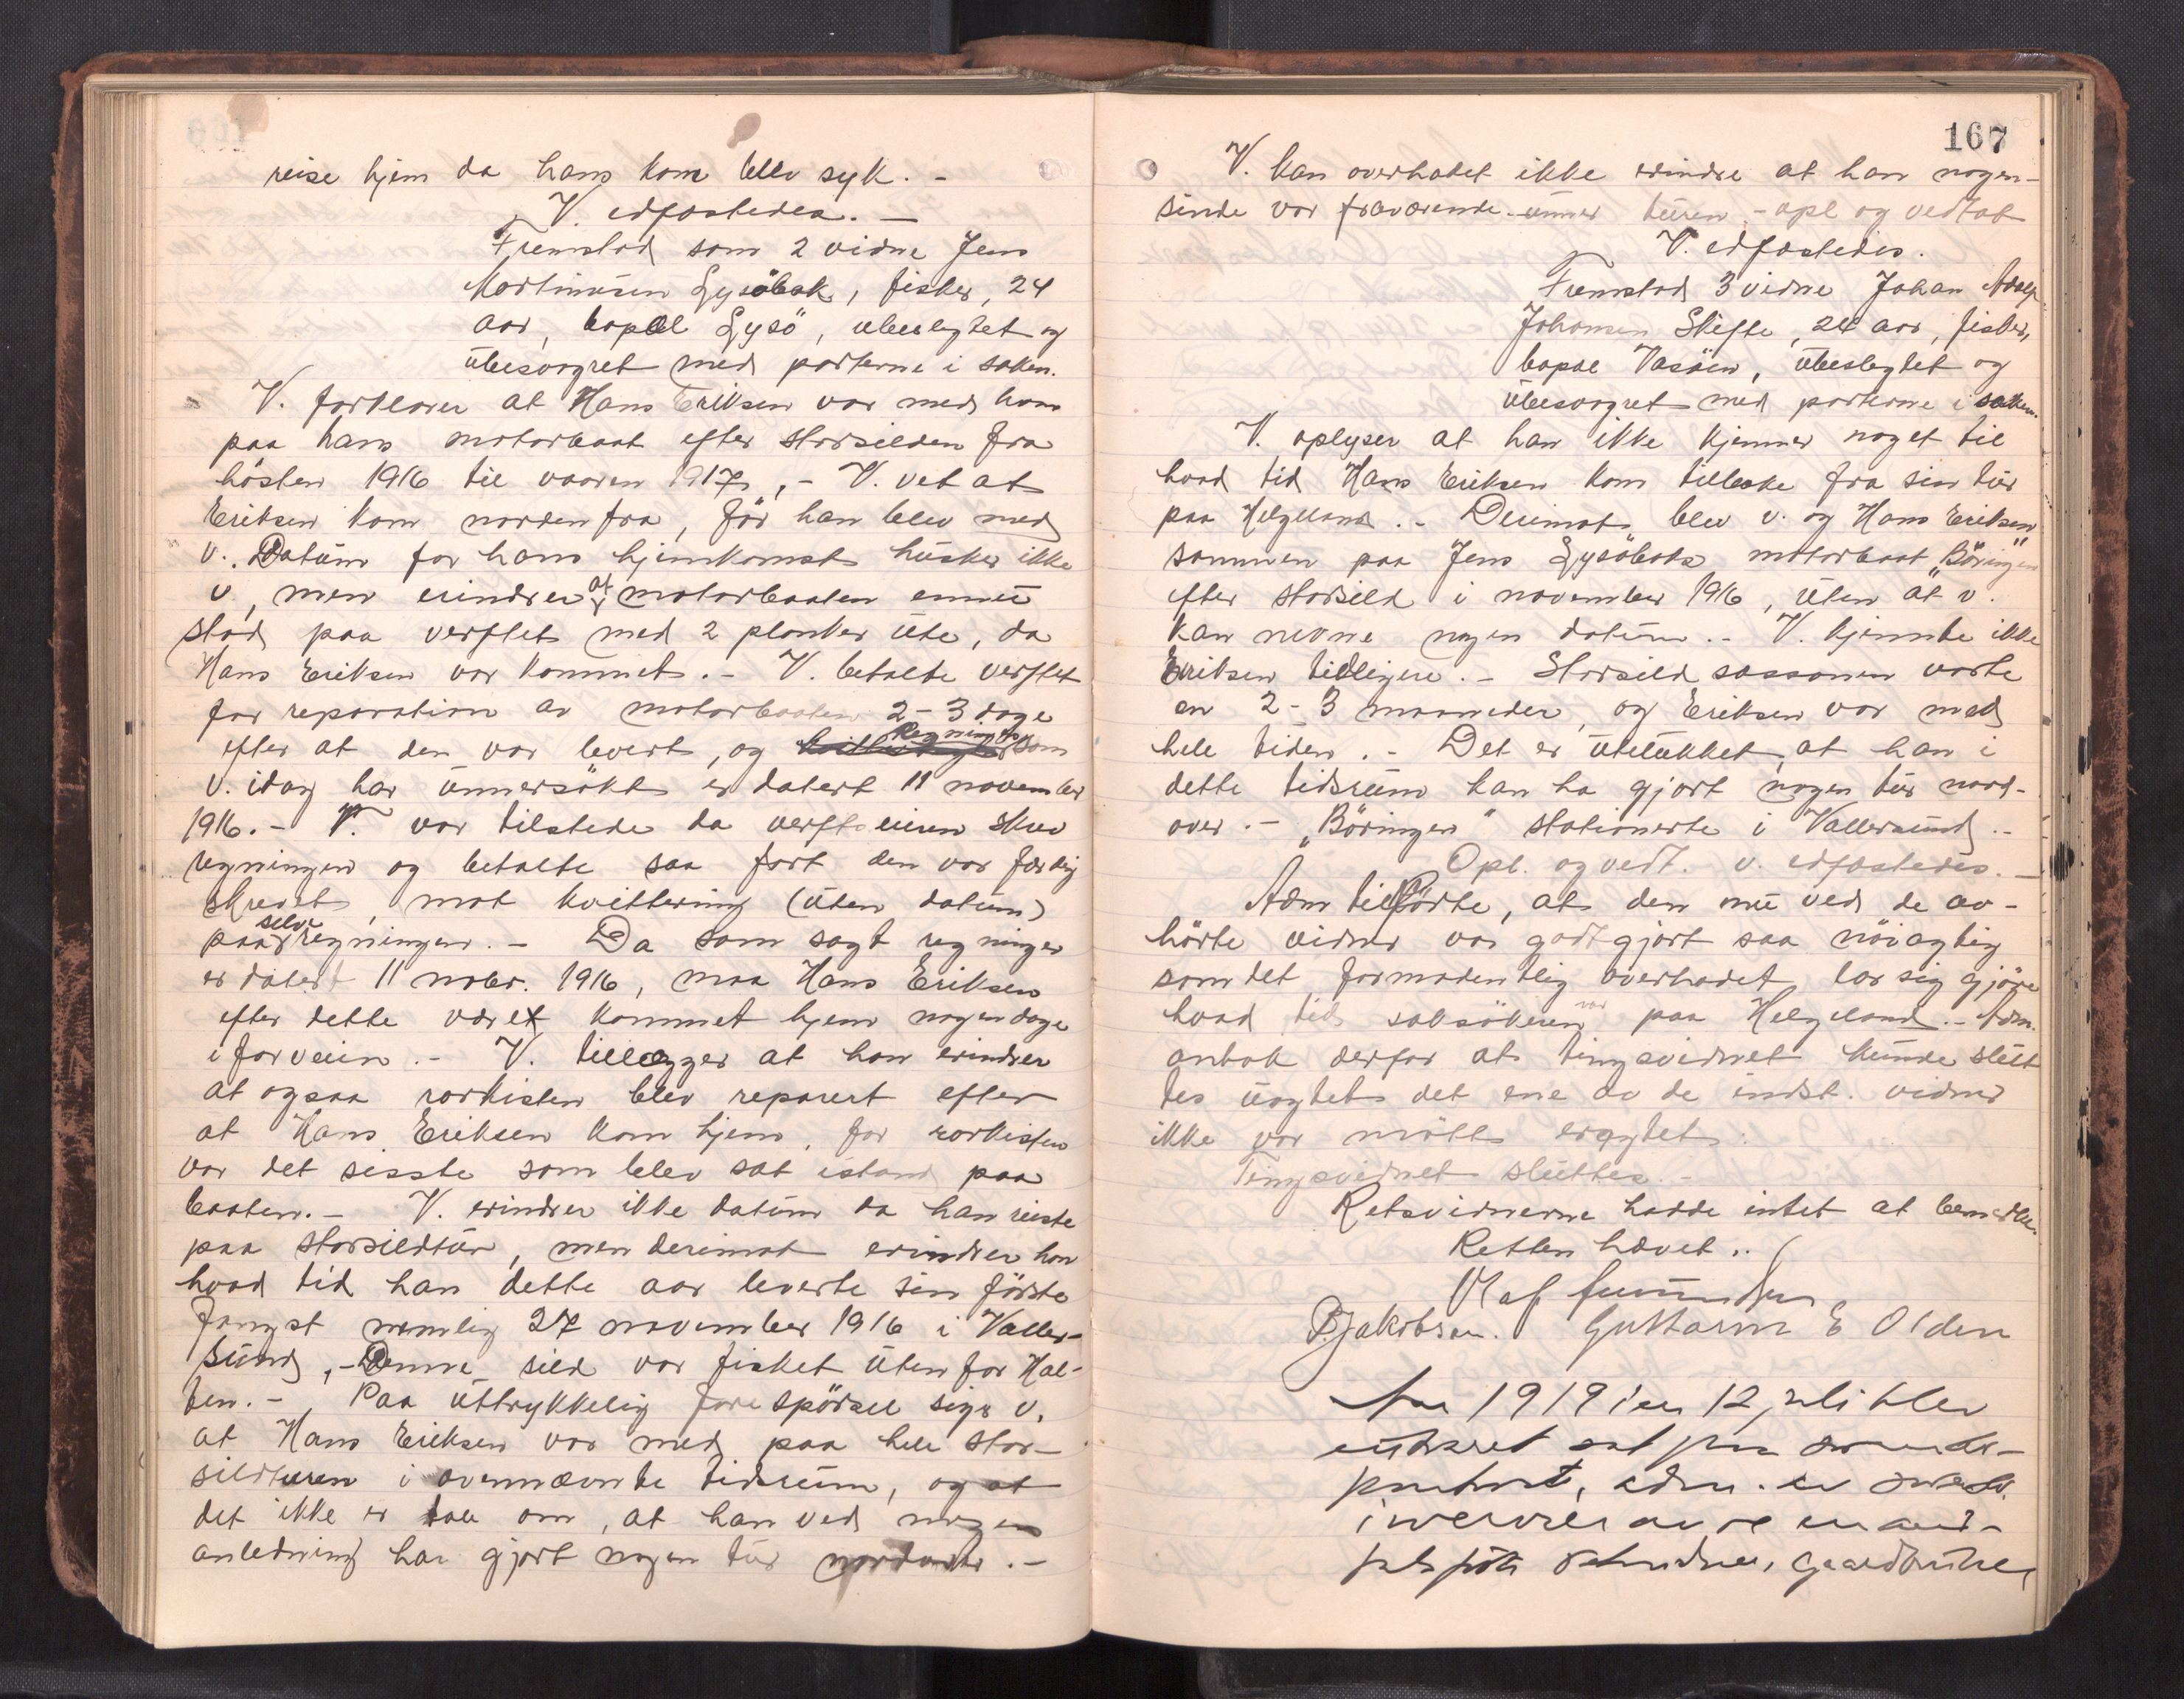 reise hjem da hans kone blev syk. -
V. edfæstedes. -
Fremstod som 2 vidne Jens
Martinusen Lysöbak, fisker, 24
aar, bopæl Lysö, ubeslegtet og
ubesvogret med parterne i saken.
V. forklarer at Hans Eriksen var med ham
paa hans motorbaat efter storsilden fra
hösten 1916 til vaaren 1917, - V. vet at
Eriksen kom nordenfra, för han blev med
v. Datum for hans hjemkomst husker ikke
v, men erindrer at motorbaaten ennu
stod paa verftet med 2 planker ute, da
Hans Eriksen var kommet. - V. betalte verftet
for reparation av motorbaaten 2-3 dage
efter at den var levert, og Regningen som
v. idag har unnersökt er datert 11 november
1916. - V. var tilstede da verftseieren skrev
regningen og betalte saa fort den var færdig
skrevet, mot kvittering (uten datum)
paa selve regningen. - Da som sagt regningen
er datert 11 nobr. 1916, maa Hans Eriksen
efter dette været kommet hjem nogen dage
i forveien. - V. tillægger at han erindrer
at ogsaa rorkisten blev reparert efter
at Hans Eriksen kom hjem, for rorkisten
var det sisste som blev sat istand paa
baaten. - V. erindrer ikke datum da han reiste
paa storsildtur, men derimot erindrer han
hvad tid han dette aar leverte sin förste
fangst nemlig 27 november 1916 i Valler-
sund, - Denne sild var fisket uten for Hal-
ten. - Paa uttrykkelig forespörsel siger v.
at Hans Eriksen var med paa hele stor-
sildturen i ovennævnte tidsrum, og at
det ikke er tale om, at han ved nogen
anledning har gjort nogen tur nordover. -
167
V. kan overhodet ikke erindre at han nogen-
sinde var fraværende unner turen. - opl og vedtat
V. edfæstedes.
Fremstod 3 vidne Johan Adolf
Johansen Skifte, 24 aar, fisker,
bopæl Vasöen, ubeslegtet og
ubesvogret med parterne i saken.
V. oplyser at han ikke kjenner noget til
hvad tid Hans Eriksen kom tilbake fra sin tur
paa Helgeland. - Derimot blev v. og Hans Eriksen
sammen paa Jens Lysöbaks motorbaat "Böringen"
efter storsild i november 1916, uten at v.
kan nevne nogen datum. - V. kjennte ikke
Eriksen tidligere. - Storsild sæssonen varte
en 2-3 maaneder, og Eriksen var med
hele tiden. - Det er utelukket, at han i
dette tidsrum kan ha gjort nogen tur nord-
over. - "Böringen" stationerte i Vallersund. -
Opl. og vedt. v. edfæstedes. -
Adm tilförte, at den nu ved de av-
hörte vidner var godtgjort saa nöiagtig
som det formodentlig overhodet lar sig gjöre
hvad tid saksökeren var paa Helgeland. - Adm.
antok derfor at tingsvidnet kunde slut
tes uagtet det ene av de indst. vidner
ikke var mött eragtet.
Tingsvidnet sluttes. -
Retsvidnerne hadde intet at bemerke.
Retten hævet.
P. Jakobsen. Guttorm E Olden
Aar 1919 den 12 juli blev